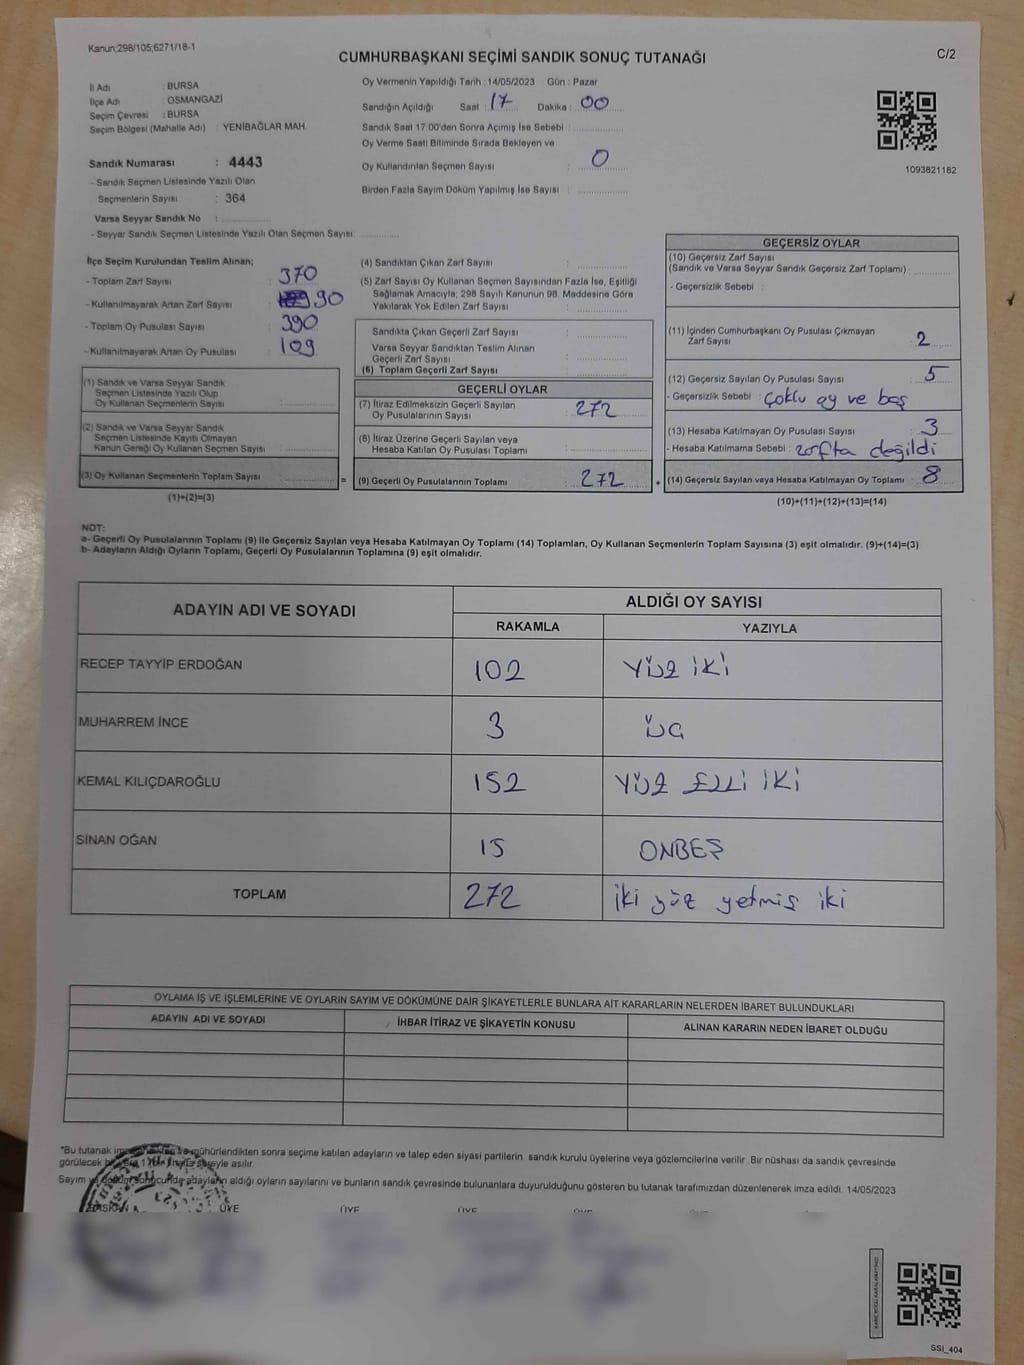 Kanun;298/105;6271/18-1
CUMHURBAŞKANI SEÇİMİ SANDIK SONUÇ TUTANAĞI
C/2
İl Adı : BURSA
İlçe Adı : OSMANGAZİ
Seçim Çevresi : BURSA
Seçim Bölgesi (Mahalle Adı) : YENİBAĞLAR MAH.
Sandık Numarası : 4443
- Sandık Seçmen Listesinde Yazılı Olan
Seçmenlerin Sayısı : 364
Varsa Seyyar Sandık No :
- Seyyar Sandık Seçmen Listesinde Yazılı Olan Seçmen Sayısı:
Oy Vermenin Yapıldığı Tarih : 14/05/2023 Gün : Pazar
Sandığın Açıldığı Saat : 17 Dakika : 00
Sandık Saat 17.00'den Sonra Açımış İse Sebebi :
Oy Verme Saati Bitiminde Sırada Bekleyen ve
Oy Kullandırılan Seçmen Sayısı : 0
Birden Fazla Sayım Döküm Yapılmış İse Sayısı :
1093821182
İlçe Seçim Kurulundan Teslim Alınan;
- Toplam Zarf Sayısı : 370
- Kullanılmayarak Artan Zarf Sayısı : 90
- Toplam Oy Pusulası Sayısı : 390
- Kullanılmayarak Artan Oy Pusulası : 109
(1) Sandık ve Varsa Seyyar Sandık
Seçmen Listesinde Yazılı Olup
Oy Kullanan Seçmenlerin Sayısı :
(2) Sandık ve Varsa Seyyar Sandık
Seçmen Listesinde Kayıtlı Olmayan
Kanun Gereği Oy Kullanan Seçmen Sayısı :
(3) Oy Kullanan Seçmenlerin Toplam Sayısı : =
(1)+(2)=(3)
(4) Sandıktan Çıkan Zarf Sayısı :
(5) Zarf Sayısı Oy Kullanan Seçmen Sayısından Fazla İse, Eşitliği
Sağlamak Amacıyla; 298 Sayılı Kanunun 98. Maddesine Göre
Yakılarak Yok Edilen Zarf Sayısı :
Sandıkta Çıkan Geçerli Zarf Sayısı :
Varsa Seyyar Sandıktan Teslim Alınan
Geçerli Zarf Sayısı :
(6) Toplam Geçerli Zarf Sayısı :
GEÇERLİ OYLAR
(7) İtiraz Edilmeksizin Geçerli Sayılan
Oy Pusulalarının Sayısı : 272
(8) İtiraz Üzerine Geçerli Sayılan veya
Hesaba Katılan Oy Pusulaları Toplamı :
(9) Geçerli Oy Pusulalarının Toplamı : 272 +
GEÇERSİZ OYLAR
(10) Geçersiz Zarf Sayısı
(Sandık ve Varsa Seyyar Sandık Geçersiz Zarf Toplamı) :
- Geçersizlik Sebebi :
(11) İçinden Cumhurbaşkanı Oy Pusulası Çıkmayan
Zarf Sayısı : 2
(12) Geçersiz Sayılan Oy Pusulası Sayısı : 5
- Geçersizlik Sebebi : çoklu oy ve boş
(13) Hesaba Katılmayan Oy Pusulası Sayısı : 3
- Hesaba Katılmama Sebebi : zarfta değildi
(14) Geçersiz Sayılan veya Hesaba Katılmayan Oy Toplamı : 8
(10)+(11)+(12)+(13)=(14)
NOT:
a- Geçerli Oy Pusulalarının Toplamı (9) ile Geçersiz Sayılan veya Hesaba Katılmayan Oy Toplamı (14) Toplamları, Oy Kullanan Seçmenlerin Toplam Sayısına (3) eşit olmalıdır. (9)+(14)=(3)
b- Adayların Aldığı Oyların Toplamı, Geçerli Oy Pusulalarının Toplamına (9) eşit olmalıdır.
ADAYIN ADI VE SOYADI
ALDIĞI OY SAYISI
RAKAMLA YAZIYLA
RECEP TAYYİP ERDOĞAN 102 YÜZ İKİ
MUHARREM İNCE 3 ÜÇ
KEMAL KILIÇDAROĞLU 152 YÜZ ELLİ İKİ
SİNAN OĞAN 15 ONBEŞ
TOPLAM 272 iki yüz yetmiş iki
OYLAMA İŞ VE İŞLEMLERİNE VE OYLARIN SAYIM VE DÖKÜMÜNE DAİR ŞİKAYETLERLE BUNLARA AİT KARARLARIN NELERDEN İBARET BULUNDUKLARI
ADAYIN ADI VE SOYADI İHBAR İTİRAZ VE ŞİKAYETİN KONUSU ALINAN KARARIN NEDEN İBARET OLDUĞU
"Bu tutanak mühürlendikten sonra seçime katılan adayların ve talep eden siyasi partilerin sandık kurulu üyelerine veya gözlemcilerine verilir. Bir nüshası da sandık çevresinde
görülecek asılır.
Sayım ve adayların aldığı oyların sayılarını ve bunların sandık çevresinde bulunanlara duyurulduğunu gösteren bu tutanak tarafımızdan düzenlenerek imza edildi. 14/05/2023
BAŞKAN ÜYE ÜYE ÜYE ÜYE
SSI_404